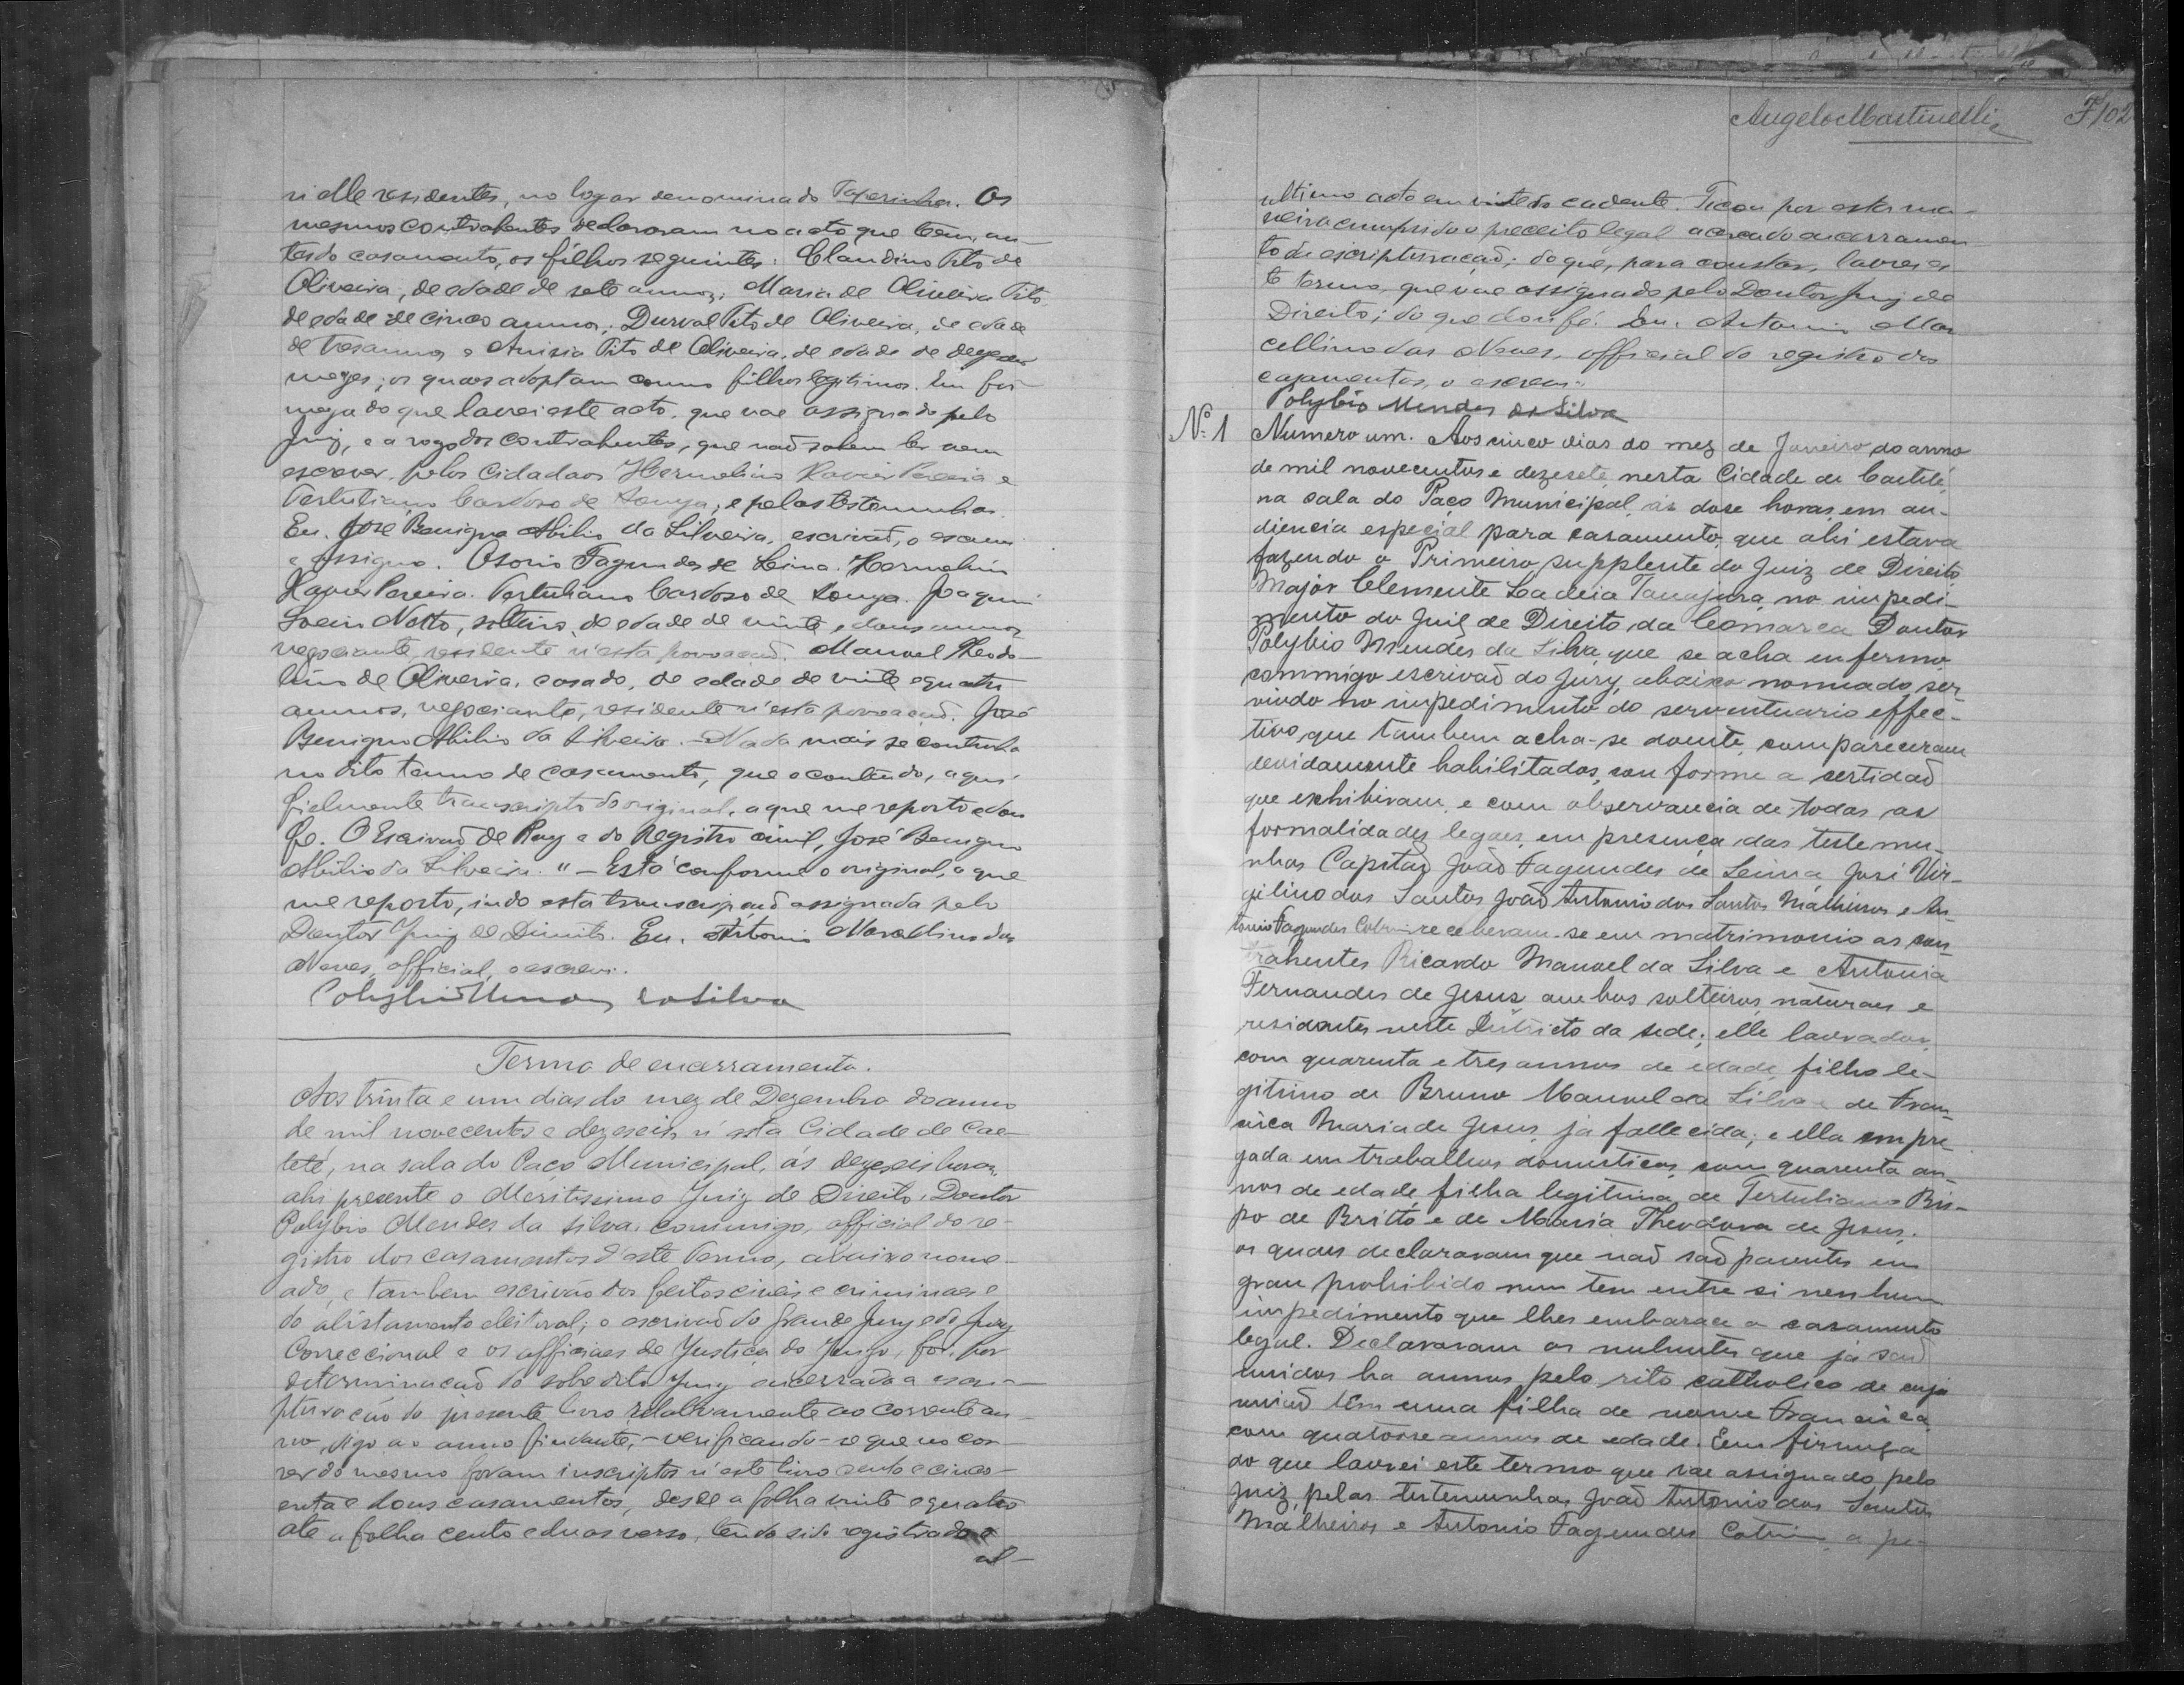 n'elle residentes, no logar denominado Taperinha. Os
mesmos contrahentes declararam no acto que tem, an-
tes do casamento, os filhos seguintes: Claudino Tito de
Oliveira, de edade de sete annos; Maria de Oliveira Tito,
de edade de cinco annos; Durval Tito de Oliveira, de edade
de tres annos e Anisia Tito de Oliveira, de edade de dezeseis
mezes; os quaes adoptam como filhos legitimos. Em fir-
meza do que lavrei este acto, que vae assignado pelo
Juiz, e a rogo dos contrahentes, que naõ sabem ler nem
escrever, pelos cidadaos Hermelino Xavier Pereira e
Tertuliano Cardoso de Souza, e pelas testemunhas.
Eu. José Benigno Abilio da Silveira, escrivaõ, o escrevi
e assigno. Osorio Fagundes de Lima. Hermelino
Xavier Pereira. Tertuliano Cardoso de Souza. Joaquim
Netto, solteiro, de edade de vinte e dous annos,
negociante, residente n'esta povoaçaõ. Manoel Theodo-
lino de Oliveira, casado, de edade de vinte e quatro
annos, negociante, residente n'esta povoaçaõ. José
Benigno Abilio da Silveira. - Nada mais se continha
no dito termo de casamento, que o contendo, aqui
fielmente transcripto do original, a que me reporto e dou
fé. O Escrivaõ de Paz e do Registro civil, José Benigno
Abilio da Silveira." - Está conforme o original, a que
me reporto, indo esta transcripçaõ assignada pelo
Doutor Juiz de Direito. Eu. Antonio Marcellino das
Neves, official, o escrevi.
Polybio Mendes da Silva
Termo de encerramento.
Aos trinta e um dias do mez de Dezembro do anno
de mil novecentos e dezeseis n'esta Cidade de Cae-
teté, na sala do Paço Municipal, ás dezeseis horas,
ahi presente o Meritissimo Juiz de Direito, Doutor
Polybio Mendes da Silva, commigo, official do re-
gistro dos casamentos d'este Termo, abaixo nome-
ado, e tambem escrivão dos feitos civeis e criminaes e
do alistamento eleitoral; o escrivaõ do grande Jury e do Jury
Correccional e os officiaes de Justiça do Juizo, foi, por
determinaçaõ do sobredito Juiz encerrada a escri-
pturação do presente livro relativamente ao corrente an-
no, digo ao anno findante, - verificando-se que no cor-
rer do mesmo foram inscriptos n'este livro cento e cinco-
enta e dous casamentos, desde a folha vinte e quatro
ate a folha cento e duas verso, tendo sido registrado o
ul-
Angelo Martinelli
F 102
ultimo acto em vinte do cadente. Ficou por esta ma-
neira cumprido o preceito legal acerca do encerramen
to de escripturaçaõ; do que, para constar, lavrei es
te termo, que vae assignado pelo Doutor Juiz de
Direito; do que dou fé. Eu. Antonio Mar
cellino das Neves, official do registro dos
casamentos, o escrevi.
Polybio Mendes da Silva
Nº 1
Numero um. Aos cinco dias do mez de Janeiro do anno
de mil novecentos e dezesete, nesta Cidade de Caeteté,
na sala do Paço Municipal, ás dose horas, em au-
diencia especial para casamento, que ahi estava
fazendo o Primeiro supplente do Juiz de Direito,
Major Clemente Tanajura, no impedi-
mento do Juiz de Direito da Comarca Doutor
Polybio Mendes da Silva, que se acha enfermo,
commigo escrivaõ do Jury, abaixo nomeado, ser
vindo no impedimento do serventuario effec-
tivo, que tambem acha-se doente, compareceram
devidamente habilitados, conforme a certidaõ
que exhibiram, e com observancia de todas as
formalidades legaes, em presença das testemu-
nhas Capitaõ Joaõ Fagundes de Lima, José Vir-
gilino dos Santos, Joaõ Antonio dos Santos Malheiros e An-
tonio Fagundes Cotrim receberam-se em matrimonio os con
trahentes Ricardo Manoel da Silva e Antonia
Fernandes de Jesus, ambos solteiros, naturaes e
residentes neste Districto da sede; elle lavrador,
com quarenta e tres annos de edade, filho le-
gitimo de Bruno Manoel da Silva e de Fran-
cisca Maria de Jesus, já fallecida; e ella empre
gada em trabalhos domesticos, com quarenta an-
nos de edade, filha legitima de Tertuliano Bis-
po de Britto e de Maria Theodora de Jesus,
os quaes declararam que naõ saõ parentes em
grau prohibido nem tem entre si nenhum
impedimento que lhes embarace o casamento
legal. Declararam os nubentes que já saõ
unidos ha annos, pelo rito catholico, de cuja
uniaõ têm uma filha de nome Francisca,
com quatorse annos de edade. Em firmeza
do que lavrei este termo que vae assignado pelo
Juiz, pelas testemunhas Joaõ Antonio dos Santos
Malheiros e Antonio Fagundes Cotrim, a pe-